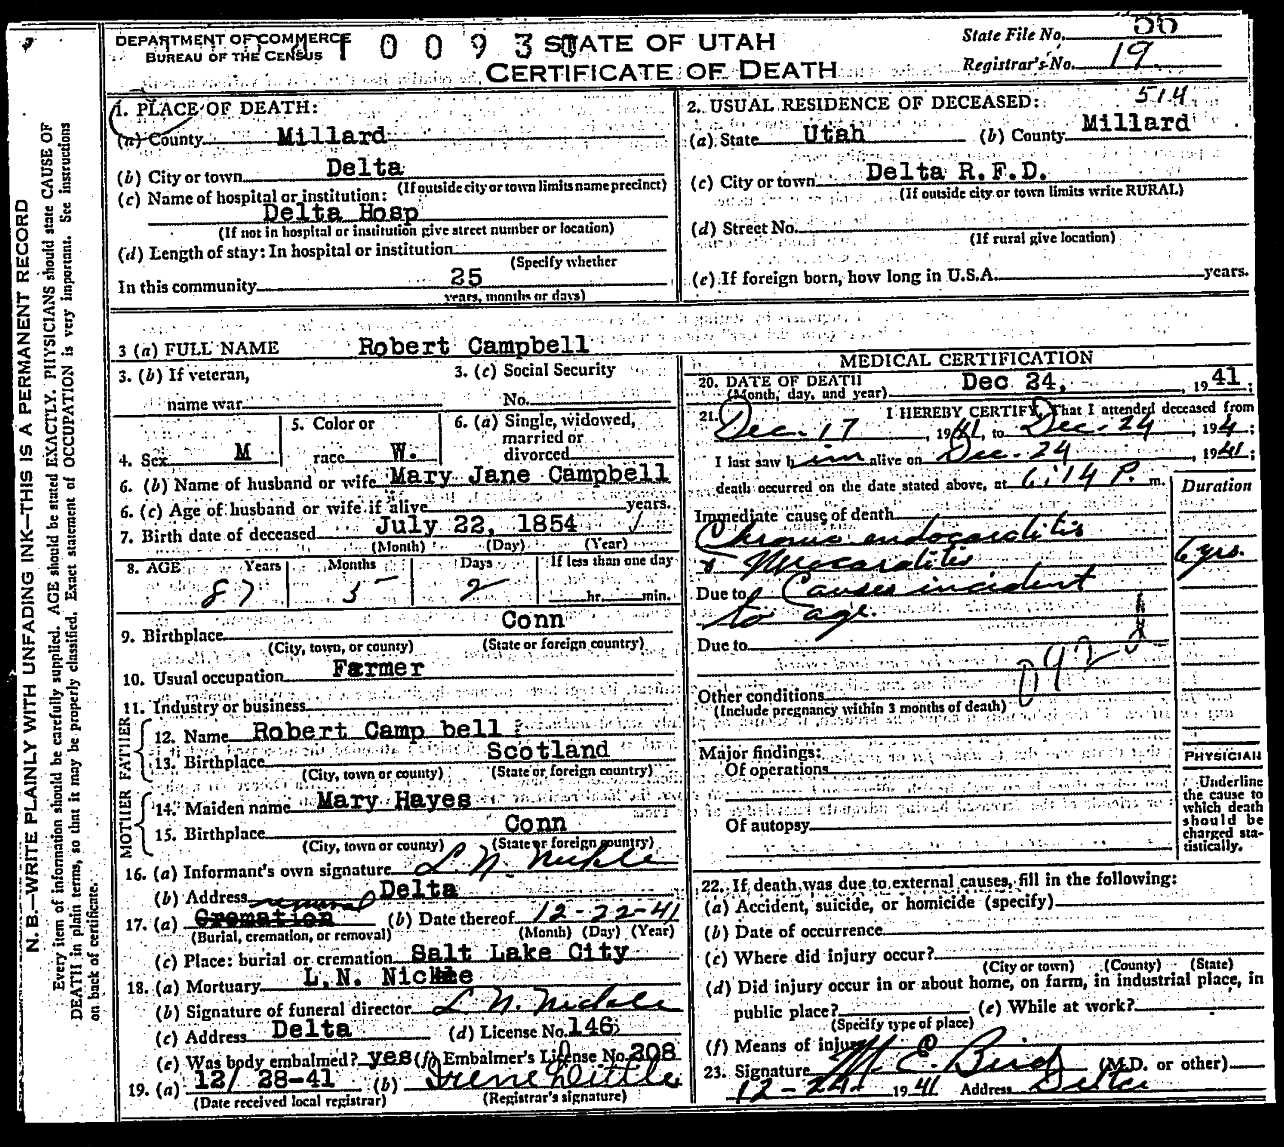 DEPARTMENT OF COMMERCE
BUREAU OF THE CENSUS
STATE OF UTAH
CERTIFICATE OF DEATH
State File No. 55
Registrar's No. 19
N. B.—WRITE PLAINLY WITH UNFADING INK—THIS IS A PERMANENT RECORD
Every item of information should be carefully supplied. AGE should be stated EXACTLY. PHYSICIANS should state CAUSE OF
DEATH in plain terms, so that it may be properly classified. Exact statement of OCCUPATION is very important. See instructions
on back of certificate.
1. PLACE OF DEATH:
(a) County Millard
(b) City or town Delta
(If outside city or town limits name precinct)
(c) Name of hospital or institution:
Delta Hosp
(If not in hospital or institution give street number or location)
(d) Length of stay: In hospital or institution
(Specify whether
In this community 25
years, months or days)
2. USUAL RESIDENCE OF DECEASED: 514
(a) State Utah (b) County Millard
(c) City or town Delta R.F.D.
(If outside city or town limits write RURAL)
(d) Street No.
(If rural give location)
(e) If foreign born, how long in U.S.A. years.
3 (a) FULL NAME Robert Campbell
3. (b) If veteran,
name war
3. (c) Social Security
No.
4. Sex M
5. Color or
race W.
6. (a) Single, widowed,
married or
divorced
6. (b) Name of husband or wife Mary Jane Campbell
6. (c) Age of husband or wife if alive years.
7. Birth date of deceased July 22, 1854
(Month) (Day) (Year)
8. AGE Years Months Days If less than one day
87 5 2 hr. min.
9. Birthplace Conn
(City, town, or county) (State or foreign country)
10. Usual occupation Farmer
11. Industry or business
FATHER
12. Name Robert Camp bell
13. Birthplace Scotland
(City, town or county) (State or foreign country)
MOTHER
14. Maiden name Mary Hayes
15. Birthplace Conn
(City, town or county) (State or foreign country)
16. (a) Informant's own signature L. N. Nickle
(b) Address Delta
removal
17. (a) Cremation (b) Date thereof 12-22-41
(Burial, cremation, or removal) (Month) (Day) (Year)
(c) Place: burial or cremation Salt Lake City
18. (a) Mortuary L.N. Nickle
(b) Signature of funeral director L N Nickle
(c) Address Delta (d) License No. 146
(e) Was body embalmed? yes (f) Embalmer's License No. 208
19. (a) 12/ 28-41 (b) Irene Little
(Date received local registrar) (Registrar's signature)
MEDICAL CERTIFICATION
20. DATE OF DEATH Dec 24, , 1941;
(Month, day, and year)
21. I HEREBY CERTIFY, That I attended deceased from
Dec. 17, 1941, to Dec. 24, 194;
I last saw him alive on Dec. 24, 1941;
death occurred on the date stated above, at 6:14 P. m.
Duration
Immediate cause of death
Chronic endocarditis
& Myocarditis 6 yrs.
Due to Causes incident
to age.
Due to
Other conditions
(Include pregnancy within 3 months of death)
Major findings:
Of operations
Of autopsy
PHYSICIAN
Underline
the cause to
which death
should be
charged sta-
tistically.
22. If death was due to external causes, fill in the following:
(a) Accident, suicide, or homicide (specify)
(b) Date of occurrence
(c) Where did injury occur?
(City or town) (County) (State)
(d) Did injury occur in or about home, on farm, in industrial place, in
public place? (e) While at work?
(Specify type of place)
(f) Means of injury
23. Signature M. E. Bird (M.D. or other)
12-24 1941 Address Delta